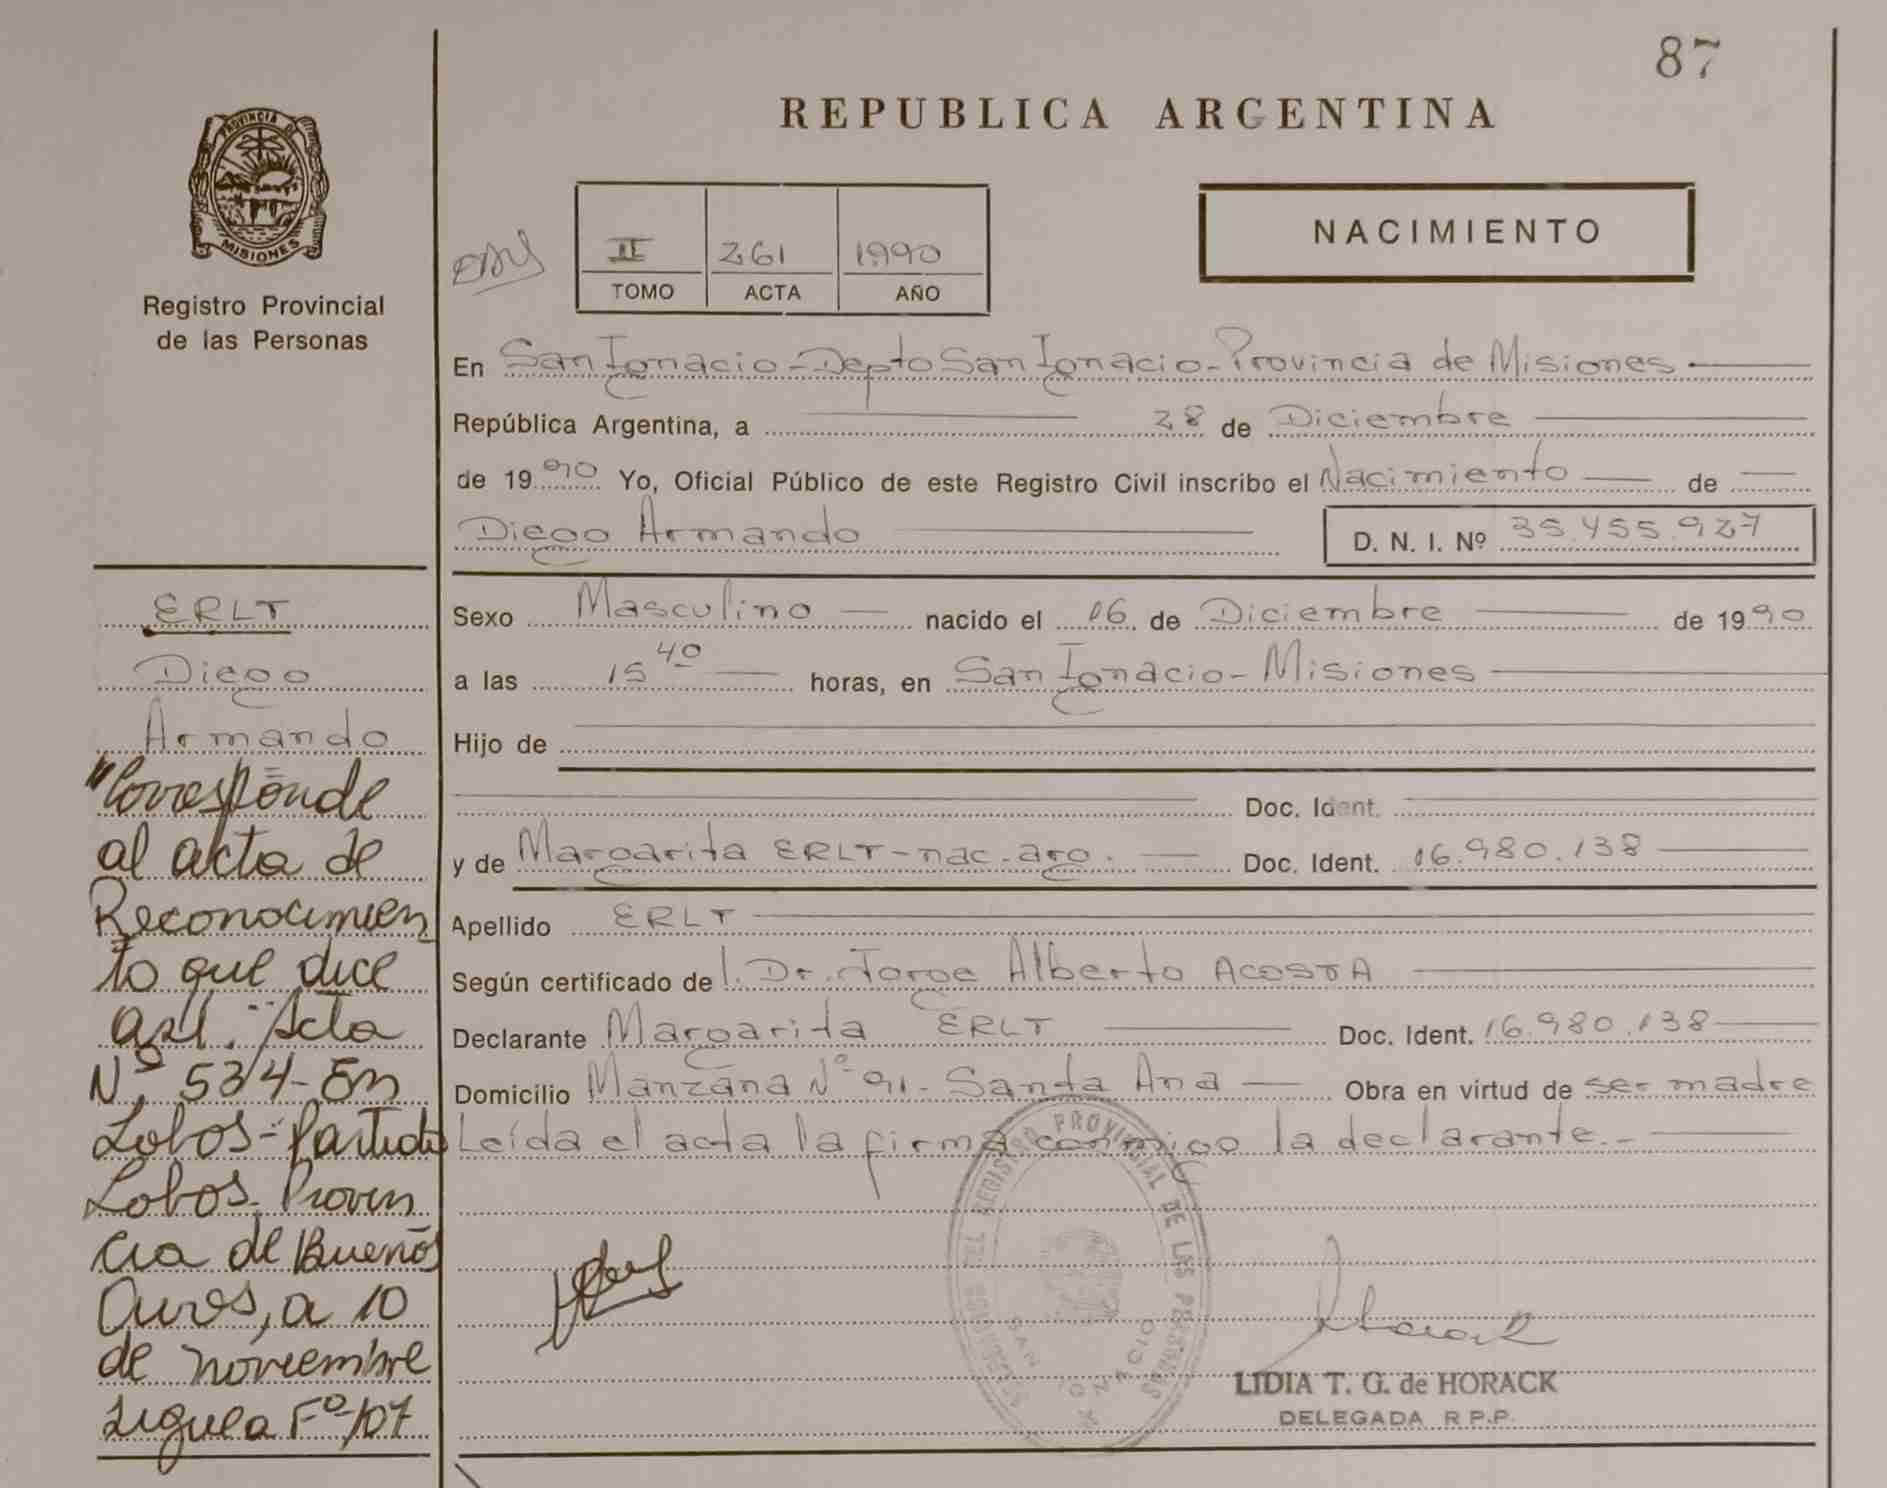 87
REPUBLICA ARGENTINA
PROVINCIA DE
MISIONES
Registro Provincial
de las Personas
II 261 1990
TOMO ACTA AÑO
NACIMIENTO
En San Ignacio - Depto San Ignacio - Provincia de Misiones
República Argentina, a 28 de Diciembre
de 1990 Yo, Oficial Público de este Registro Civil inscribo el Nacimiento de
Diego Armando D. N. I. Nº 35.455.927
Sexo Masculino nacido el 06 de Diciembre de 1990
a las 15 40 horas, en San Ignacio - Misiones
Hijo de
Doc. Ident.
y de Margarita ERLT - nac. arg. Doc. Ident. 16.980.138
Apellido ERLT
Según certificado de l. Dr. Jorge Alberto ACOSTA
Declarante Margarita ERLT Doc. Ident. 16.980.138
Domicilio Manzana Nº 91 - Santa Ana Obra en virtud de ser madre
Leída el acta la firma conmigo la declarante.-
REGISTRO PROVINCIAL DE LAS PERSONAS
SAN IGNACIO
LIDIA T. G. de HORACK
DELEGADA R.P.P.
ERLT
Diego
Armando
"Corresponde
al acta de
Reconocimien
to que dice
así: "Acta
Nº 534 - En
Lobos - Partido
Lobos - Provin
cia de Buenos
Aires, a 10
de noviembre
Fº 107